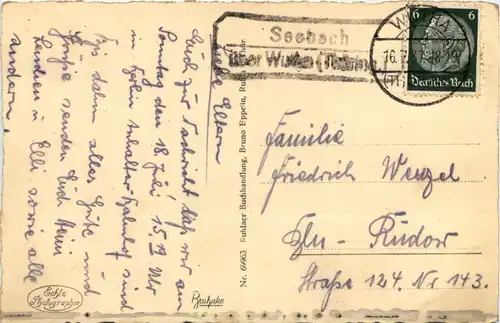 Liebe Eltern
Euch zur Nachricht, daß wir am
Sonntag den 18. Juli 15.19 Uhr
in Berlin Anhalter Bahnhof sind
Bis dahin alles Gute und
Grüße senden Euch Heini
Elli sowie alle
andern.
Echte
Photographie
Nr. 69963 Ruhlaer Buchhandlung, Bruno Eppelin, Ruhla
Seebach
über Wutha (Thüring
6 6
Deutsches Reich
Familie
Friedrich Wenzel
Bln-Rudow
Straße 124. Nr 143.